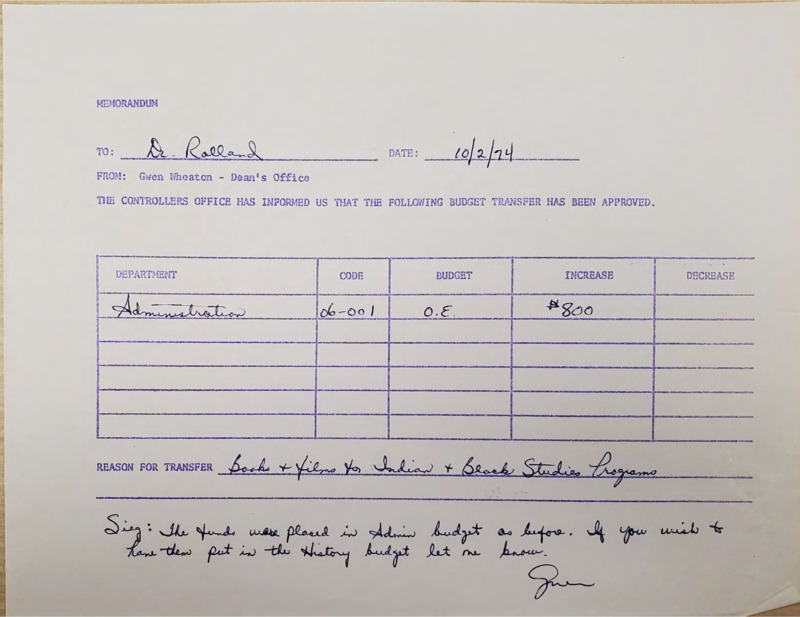 MEMORANDUM
TO: Dr. Rolland DATE: 10/2/74
FROM: Gwen Wheaton - Dean's Office
THE CONTROLLERS OFFICE HAS INFORMED US THAT THE FOLLOWING BUDGET TRANSFER HAS BEEN APPROVED.
DEPARTMENT CODE BUDGET INCREASE DECREASE
Administration 06-001 O.E. $800
REASON FOR TRANSFER Books + films for Indian + Black Studies Programs
Sieg: The funds were placed in Admin budget as before. If you wish to
have them put in the History budget let me know.
Gwen